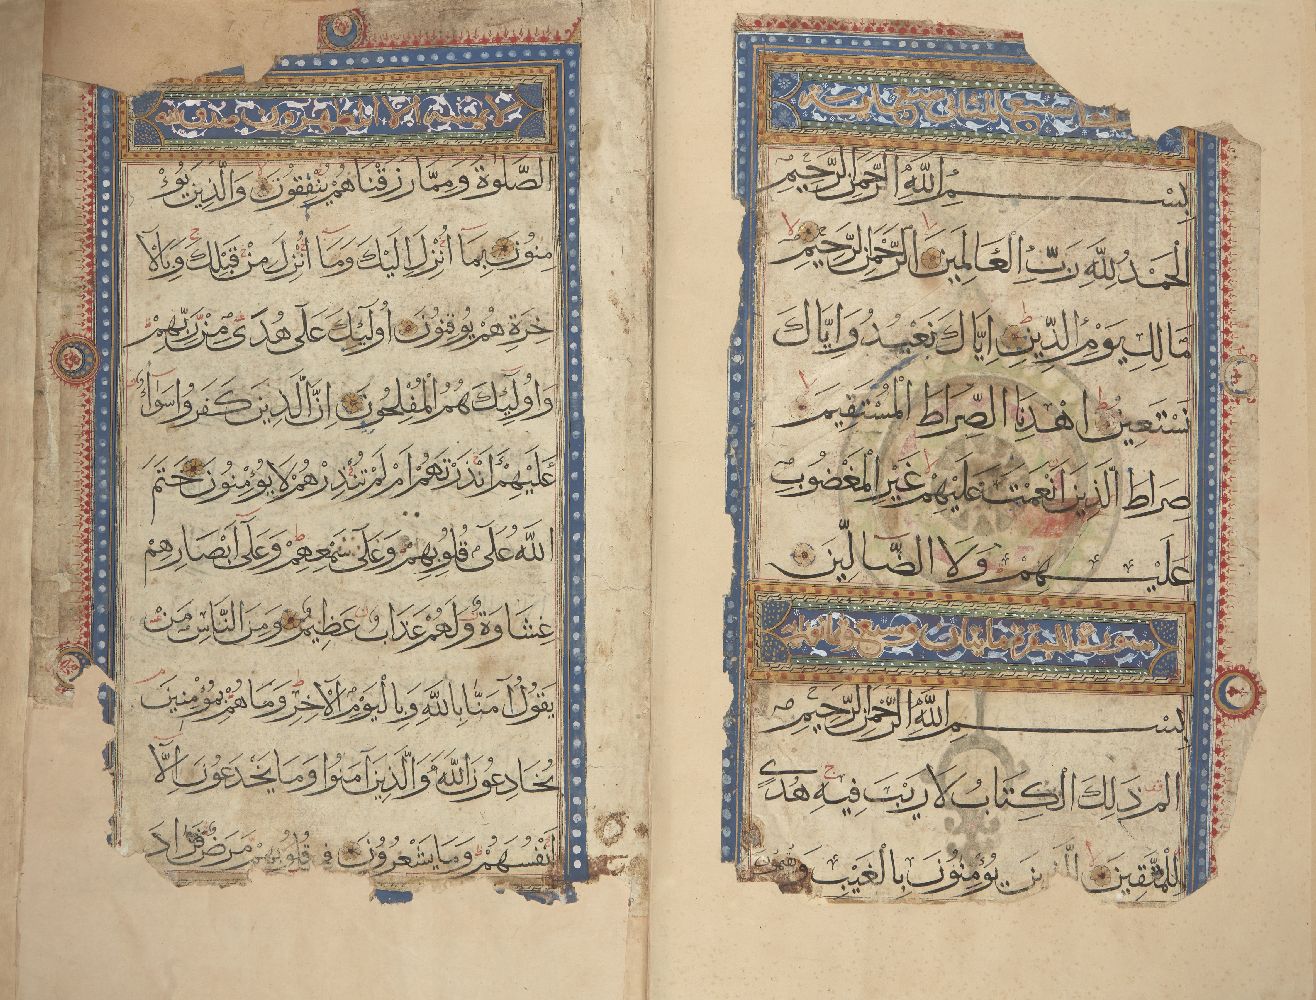 السبع المثاني وهي سبع آية
بِسْمِ اللَّهِ الرَّحْمَنِ الرَّحِيمِ
الْحَمْدُ لِلَّهِ رَبِّ الْعَالَمِينَ الرَّحْمَنِ الرَّحِيمِ
مَالِكِ يَوْمِ الدِّينِ اِيَّاكَ نَعْبُدُ وَاِيَّاكَ
نَسْتَعِينُ اِهْدِنَا الصِّرَاطَ الْمُسْتَقِيمَ
صِرَاطَ الَّذِينَ اَنْعَمْتَ عَلَيْهِمْ غَيْرِ الْمَغْضُوبِ
عَلَيْهِمْ وَلَا الضَّآلِّينَ
سورة البقرة مايتان وسبع وثمانون آية
بِسْمِ اللَّهِ الرَّحْمَنِ الرَّحِيمِ
الم ذَلِكَ الْكِتَابُ لَا رَيْبَ فِيهِ هُدًى
لِلْمُتَّقِينَ الَّذِينَ يُؤْمِنُونَ بِالْغَيْبِ وَيُقِيمُونَ
لا يمسه الا المطهرون صدق الله
الصَّلَوٰةَ وَمِمَّا رَزَقْنَاهُمْ يُنْفِقُونَ وَالَّذِينَ يُؤْ
مِنُونَ بِمَآ اُنْزِلَ اِلَيْكَ وَمَآ اُنْزِلَ مِنْ قَبْلِكَ وَبِالْاٰ
خِرَةِ هُمْ يُوقِنُونَ اُولَٓئِكَ عَلَى هُدًى مِنْ رَبِّهِمْ
وَاُولَٓئِكَ هُمُ الْمُفْلِحُونَ اِنَّ الَّذِينَ كَفَرُوا سَوَآءٌ
عَلَيْهِمْ ءَاَنْذَرْتَهُمْ اَمْ لَمْ تُنْذِرْهُمْ لَا يُؤْمِنُونَ خَتَمَ
اللَّهُ عَلَى قُلُوبِهِمْ وَعَلَى سَمْعِهِمْ وَعَلَى اَبْصَارِهِمْ
غِشَاوَةٌ وَلَهُمْ عَذَابٌ عَظِيمٌ وَمِنَ النَّاسِ مَنْ
يَقُولُ اٰمَنَّا بِاللَّهِ وَبِالْيَوْمِ الْاٰخِرِ وَمَا هُمْ بِمُؤْمِنِينَ
يُخَادِعُونَ اللَّهَ وَالَّذِينَ اٰمَنُوا وَمَا يَخْدَعُونَ اِلَّا
اَنْفُسَهُمْ وَمَا يَشْعُرُونَ فِي قُلُوبِهِمْ مَرَضٌ فَزَادَ